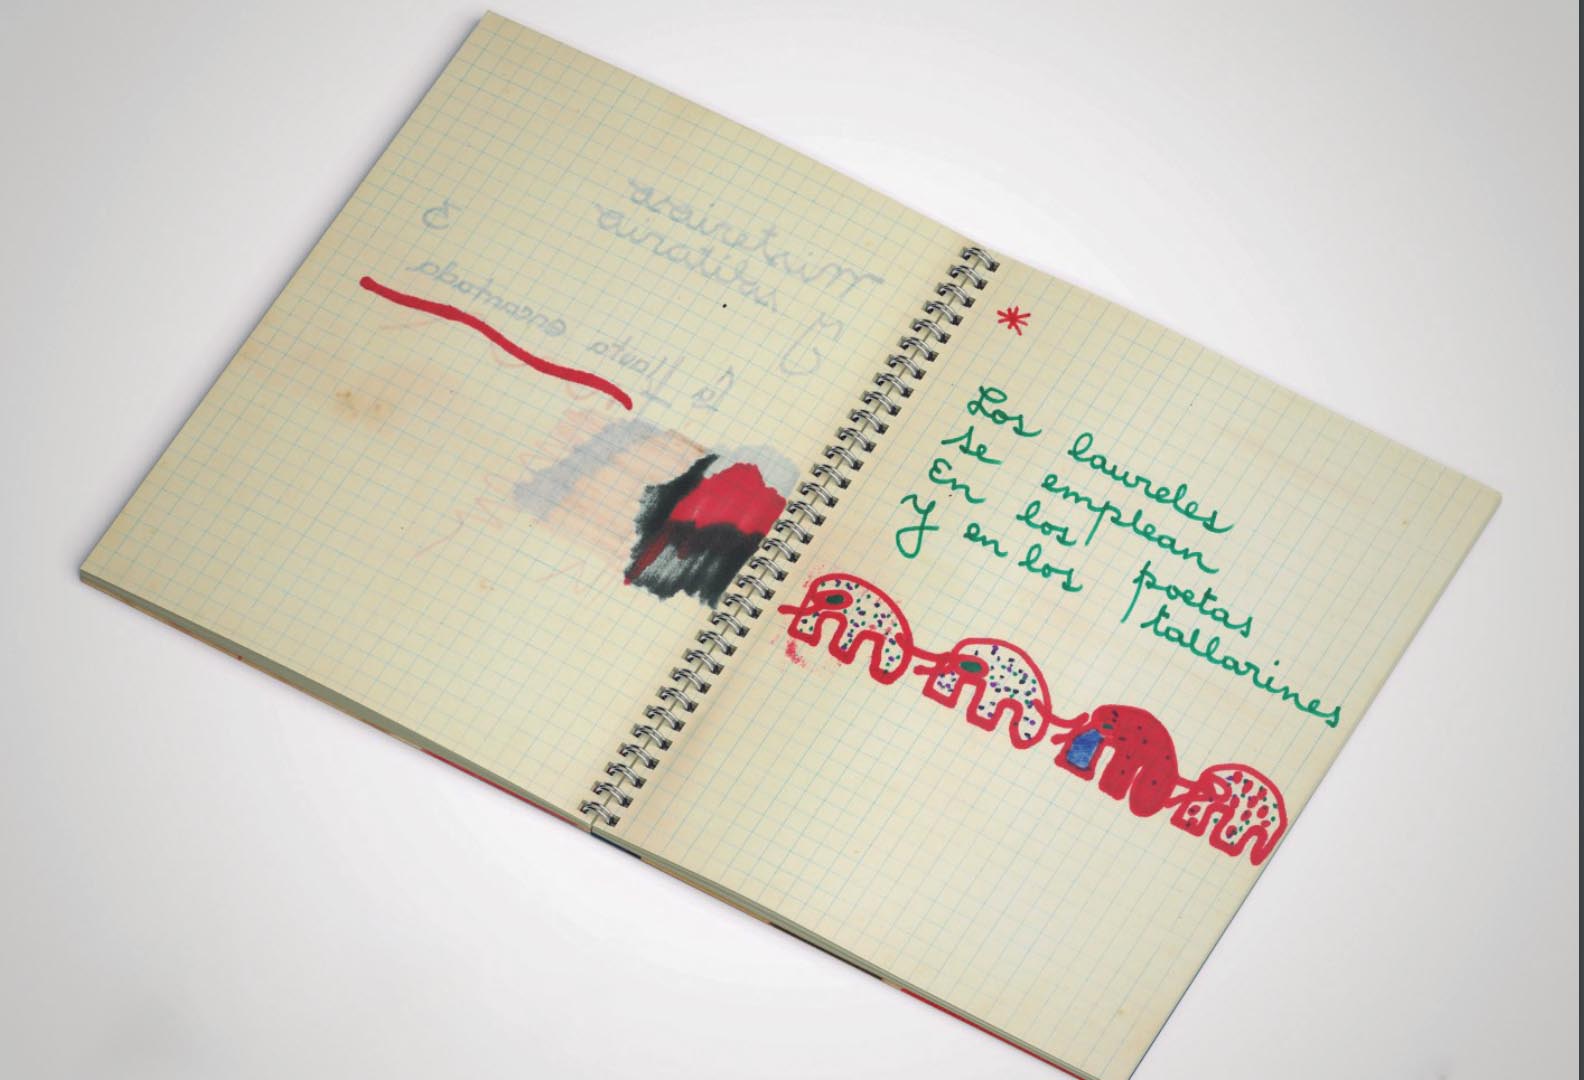 *
Los laureles
se emplean
En los poetas
Y en los tallarines